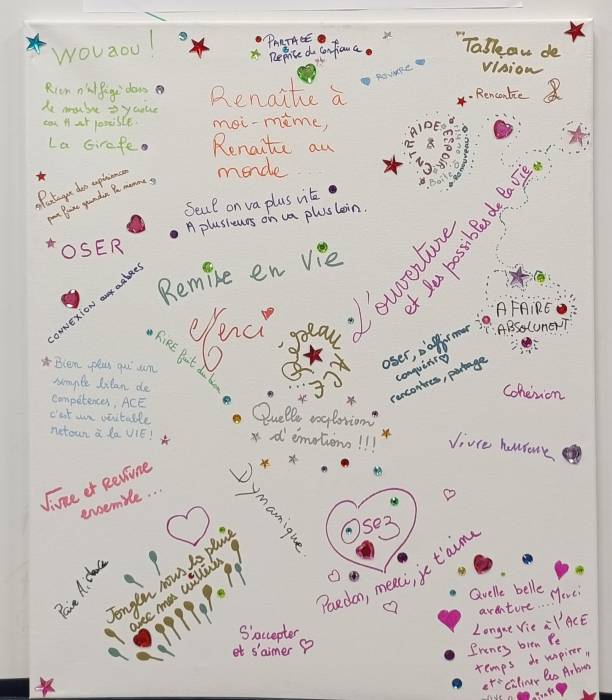 WOUAOU !
PARTAGE
Reprise de confiance
ROUVRIR
Tableau de
vision
- Rencontre
Rien n'est figé dans
le monde
est possible.
La Girafe
Renaître à
moi-même,
Renaître au
monde ...
ENTRAIDE
ESPOIR
Partager des expériences
pour faire grandir
Seul on va plus vite
A plusieurs on va plus loin.
OSER
CONNEXION aux arbres
Remise en vie
L'ouverture
et les possibles de la vie
A FAIRE
ABSOLUMENT
Merci
RIRE fait du bien
Réseau ACE
OSER, s'affirmer
conquérir
rencontres, partage
Bien plus qu'un
simple bilan de
compétences, ACE
c'est un véritable
retour à la VIE !
Quelle explosion
d'émotions !!!
Cohésion
Vivre heureux
Vivre et Revivre
ensemble ...
Dynamique.
Osez
Pardon, merci, je t'aime
Jongler sous la pluie
avec mes cuillères
S'accepter
et s'aimer
Quelle belle
aventure .... Merci
Longue Vie à l'ACE
Prenez bien le
temps de respirer
et câliner les Arbres